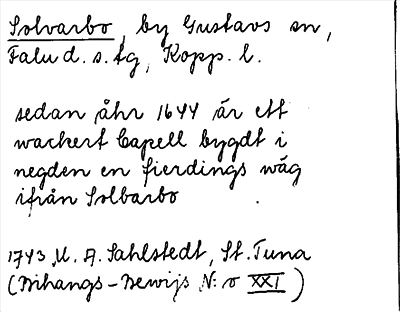 Solvarbo, by Gustavs sn,
Falu d. s. tg, Kopp. l.
sedan åhr 1644 är ett
wackert Capell bygdt i
negden en fierdings wäg
ifrån Solbarbo
1743 M. A. Sahlstedt, St. Tuna
(Bihangs-Bewijs N:o XXI)